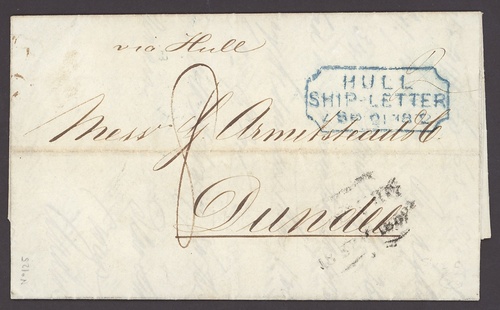 via Hull
HULL
SHIP-LETTER
Messrs G. Armitstead & Co.
8
Dundee